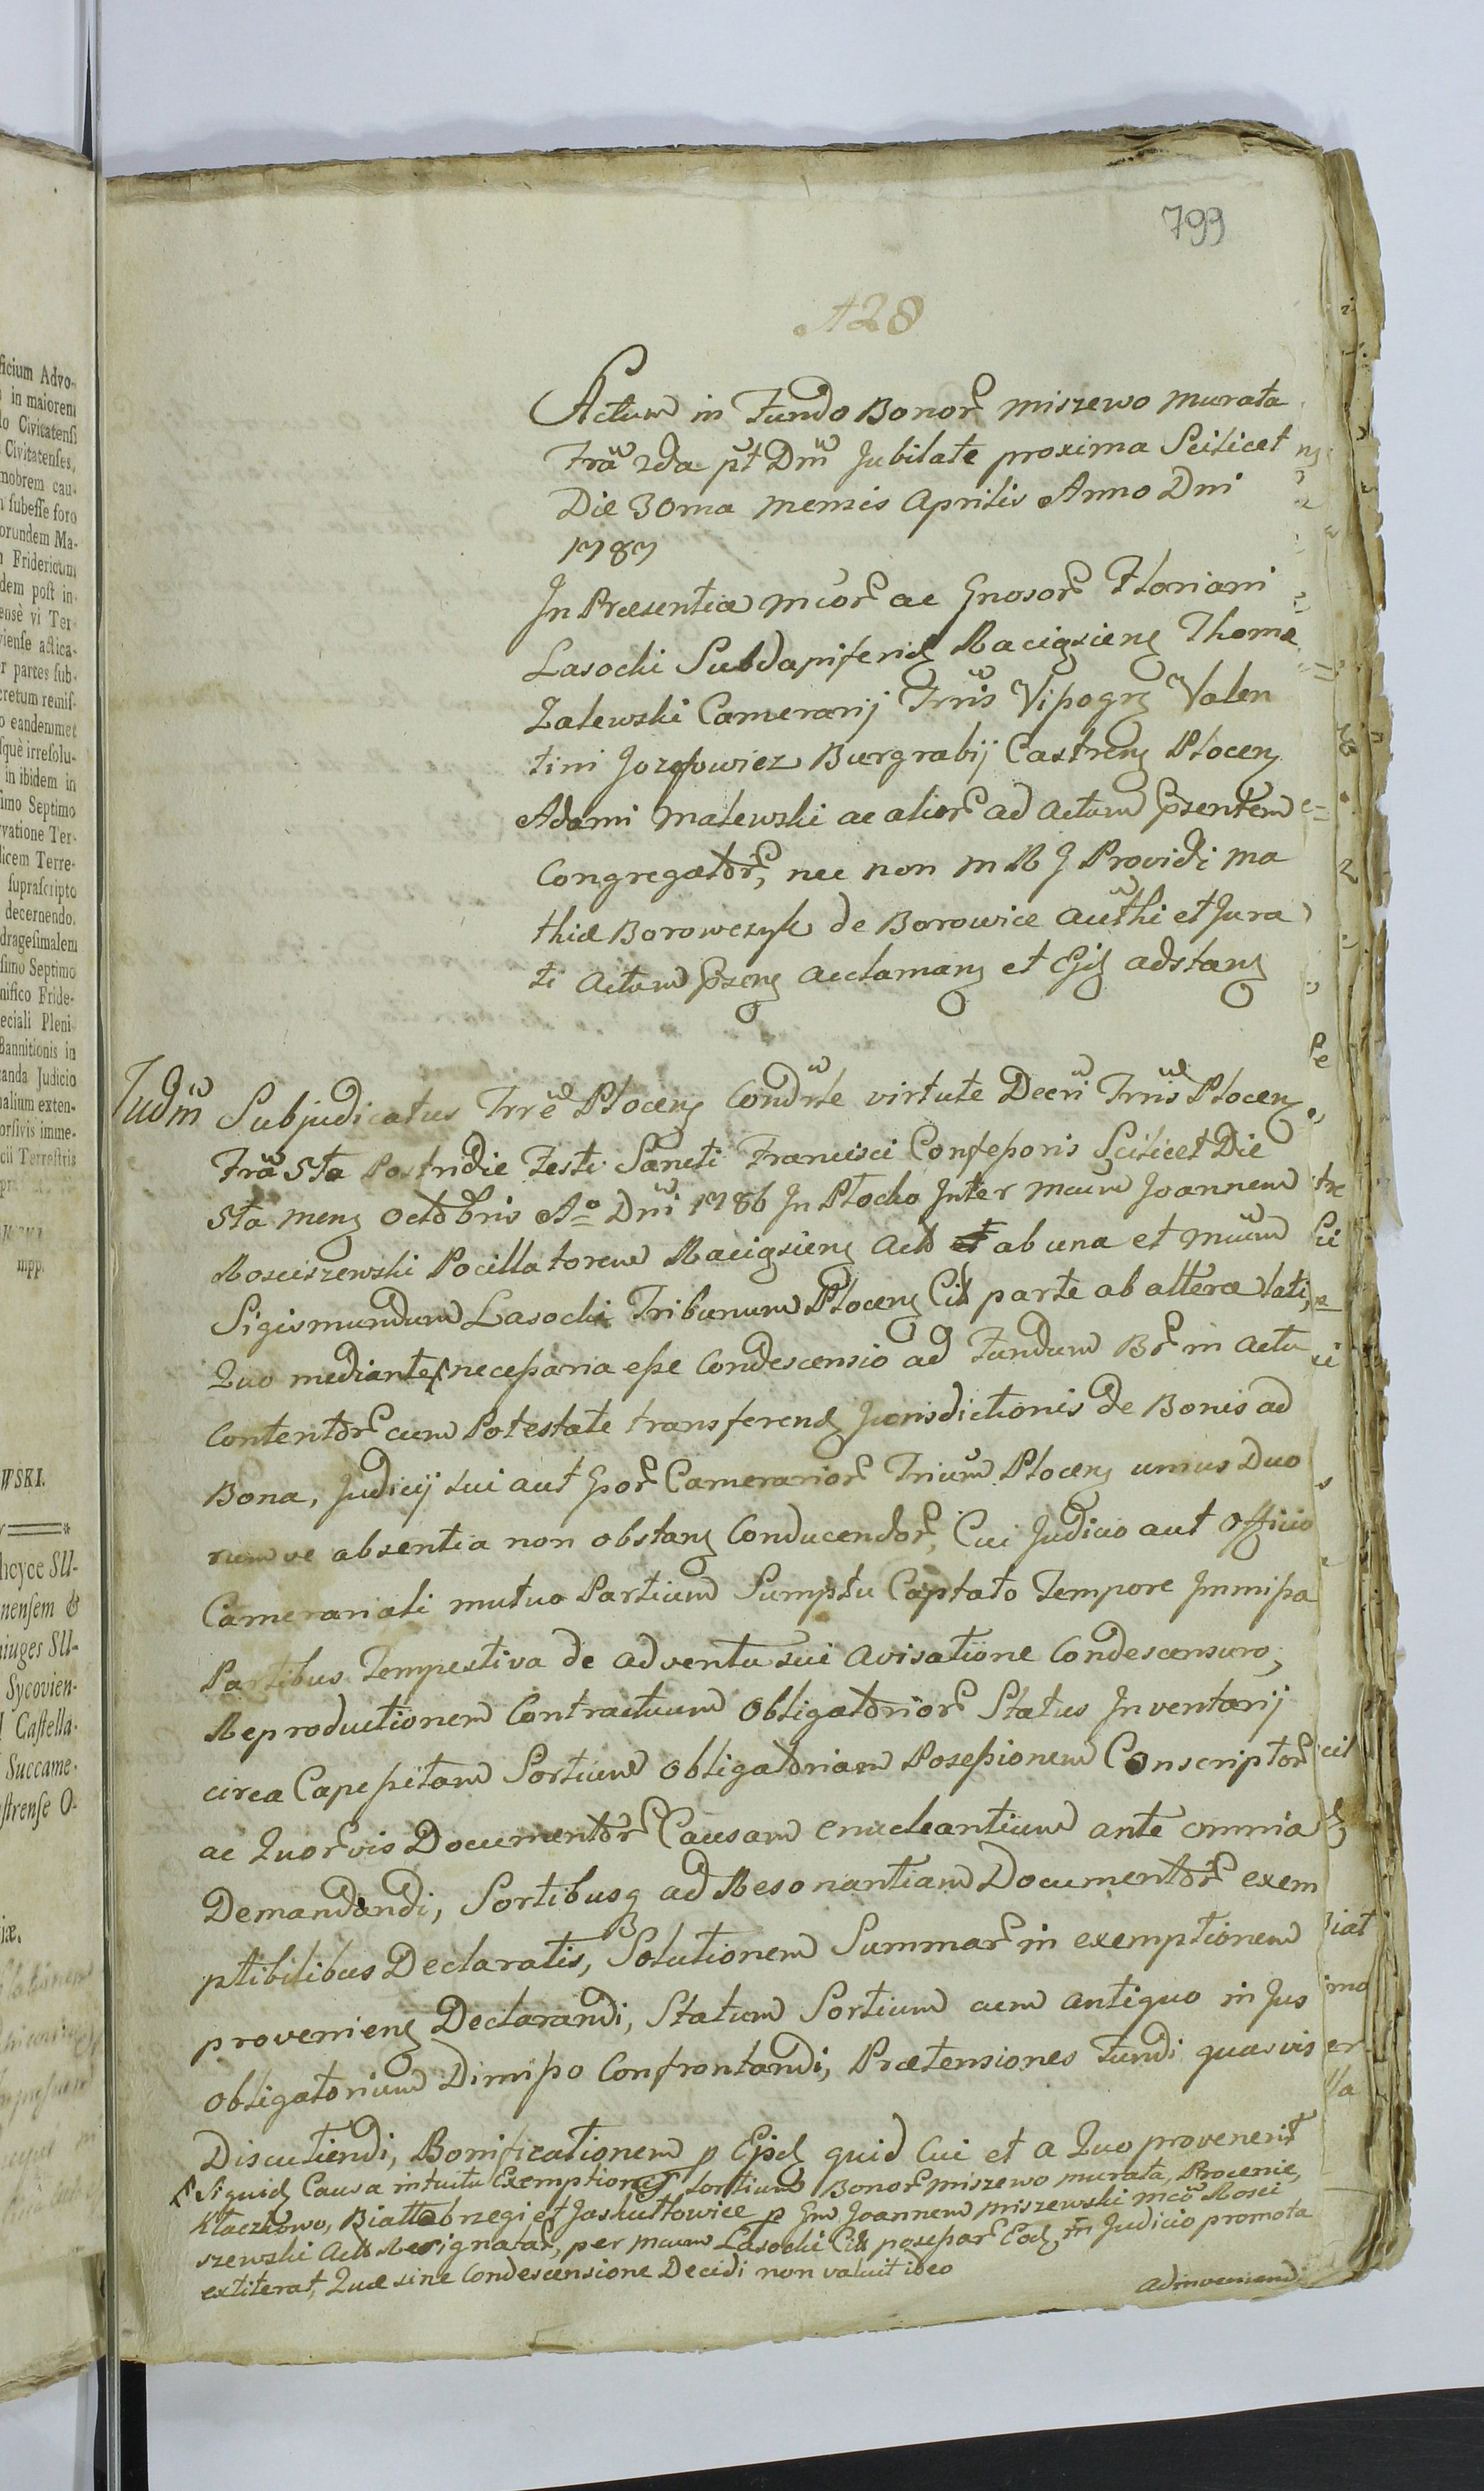 799
A28
Actum in Fundo Bonor Miszewo Murata
Fra 2da pt Dm Jubilate proxima Scilicet
Die 30ma Mensis Aprilis Anno Dni
1787
In Præsentia Mcor ac Gnosor Floriani
Lasocki Subdapiferid Raciązieng Thomæ
Zalewski Camerarij Trris Vissogrg Valen
tini Jozefowicz Burgrabij Castreng Ploceng
Adami Malewski ac alior ad Actum Przentem
Congregator, nec non M R J Providi Ma
thiæ Borowczyk de Borowice Authi et Jura
ti Actum Przeng acclamang et Ejd adstang
Judm Subjudicatus Trre Ploceng Condnle virtute Decri Trris Ploceng
Fra 5ta Postridie Festi Sancti Francisci Confessoris Scilicet Die
5ta Meng Octobris Ao Dni 1786 In Plocko Inter Mcum Joannem
Rosciszewski Pocillatorem Raciązieng Act ab una et Mcum
Sigismundum Lasocki Tribunum Ploceng Cit parte ab altera lati,
Quo mediante necessaria esse Condescensio ad Fundum Br in Actu
Contentor cum Potestate transferend Jurisdictionis de Bonis ad
Bona, Judicij sui aut Gsor Camerarior Trium Ploceng unius Duo
rumve absentia non obstang Conducendor, Cui Judicio aut Officio
Camerariali mutuo Partium Sumptu Captato Tempore Immissa
Partibus Tempestiva de adventu sui Avisatione Condescensuro,
Reproductionem Contractuum Obligatorior Status Inventarij
circa Capessitam Sortium obligatoriam Possessionem Conscriptor
ac Quorvis Documentor Causam enucleantium ante omnia
Demandandi, Sortibusq ad Resonantiam Documentor exem
ptibilibus Declaratis, Solutionem Summar in exemptionem
provenieng Declarandi, Statum Sortium cum antiquo in Jus
obligatorium Dimisso Confrontandi, Prætensiones Fundi quasvis
Discutiendi, Bonificationem p Ejsd quid Cui et a Quo provenerit
Siquid Causa intuitu Exemptionis Sortium Bonor Miszewo Murata, Procenie,
Kłaczkowo, Białłobrzegi et Jaskułłowice p Gm Joannem Miszewski Mco Rosci
szewski Act Resignatar, per Mcum Lasocki Cit possessar Eod in Judicio promota
extiterat, Quæ sine Condescensione Decidi non valuit ideo
adinveniendi